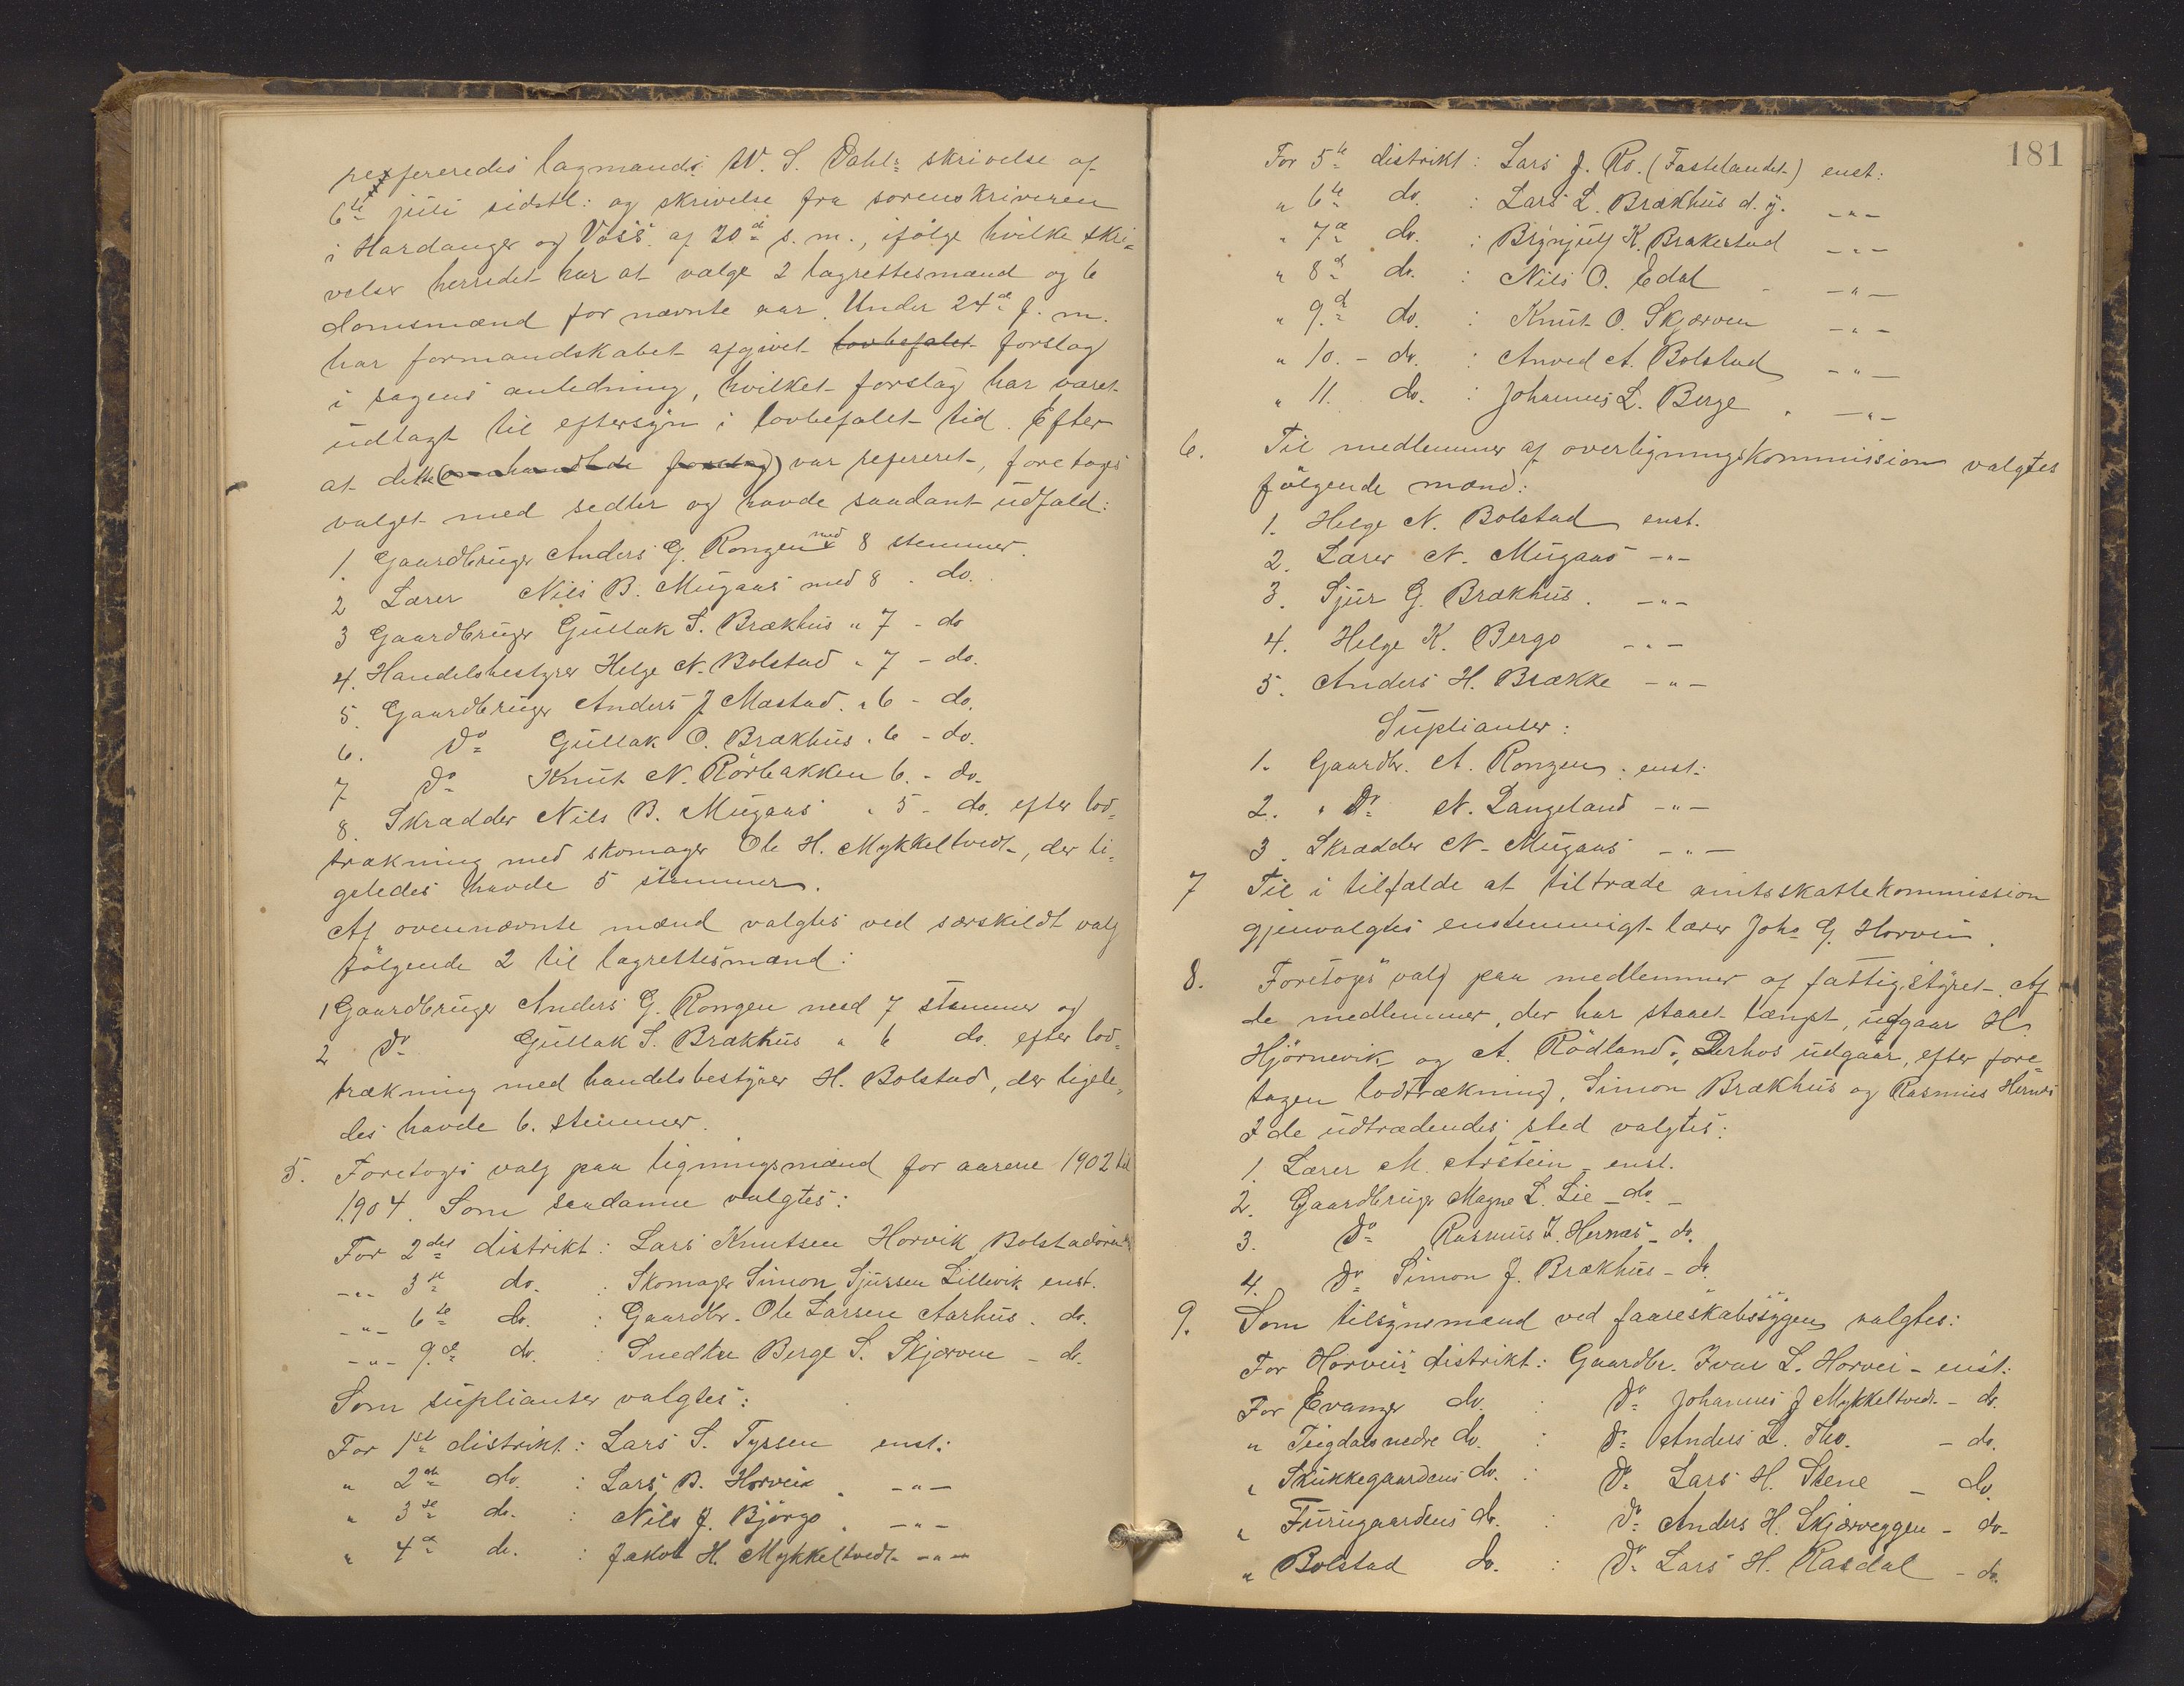 refereredes lagmand W. S. Dahls skrivelse af
6te juli sidstl: og skrivelse fra sorenskriveren
i Hardanger og Voss af 30d s. m., ifølge hvilke skri-
velser herredet har at vælge 2 lagrettesmænd og 6
domsmænd for nævnte aar. Under 24d f. m.
har formandskabet afgivet lovbefalet forslag
i sagens anledning, hvilket forslag har været
udlagt til eftersyn i lovbefalet tid. Efter
at dette (omhandlede forslag) var refereret, foretoges
valget med sedler og havde saadant udfald:
1. Gaardbruger Anders G. Rongen med 8 stemmer.
2 Lærer Nils B. Mugaas med 8 - do.
3 Gaardbruger Gullak S. Brækhus " 7 - do
4. Handelsbestyrer Helge N. Bolstad " 7 - do.
5. Gaardbruger Anders J Mæstad. " 6 - do.
6. Do Gullak O. Brækhus " 6 - do.
7 Do Knut N. Rörbakken 6. - do.
8. Skrædder Nils B. Mugaas " 5 - do. efter lod-
trækning med skomager Ole H. Mykkeltvedt, der li-
geledes havde 5 stemmer.
Af ovennævnte mænd valgtes ved særskildt valg
følgende 2 til lagrettesmænd:
1 Gaardbruger Anders G. Rongen med 7 stemmer og
2 Do Gullak S. Brækhus " 6 do. efter lod-
trækning med handelsbestyrer H. Bolstad, der ligele-
des havde 6. stemmer.
5. Foretoges valg paa ligningsmænd for aarene 1902 til
1904. Som saadanne valgtes:
For 2det distrikt: Lars Knutsen Horvik Bolstadören
-"- 3die do. : Skomager Simon Sjursen Lillevik enst.
-"- 6te do. : Gaardbr. Ole Larsen Aarhus - do.
-"- 9de do. : Snedker Berge S. Skjerven - do.
Som suplianter valgtes:
For 1ste distrikt: Lars S. Tyssen enst:
" 2det do. : Lars B. Horvei -"-
" 3die do. : Nils J. Björgo -"-
" 4de do. : Jakob H. Mykkeltvedt -"-
181
For 5te distrikt: Lars J. Ro. (Fastelandet) enst:
" 6te do. : Lars L. Brækhus d. y. -"-
" 7de do. : Brynjulf K. Brakestad -"-
" 8de do. : Nils O. Edal -"-
" 9de do. : Knut O. Skjerven -"-
" 10. - do. : Anved A. Bolstad -"-
" 11. do. : Johannes L. Berge -"-
6. Til medlemmer af overligningskommission valgtes
følgende mænd:
1. Helge N. Bolstad enst.
2. Lærer N. Mugaas -"-
3. Sjur G. Brækhus. -"-
4. Helge K. Bergo -"-
5. Anders H. Brække -"-
Suplianter:
1. Gaardbr. A. Rongen: enst:
2. " Do N. Langeland -"-
3. Skrædder N. Mugaas -"-
7 Til i tilfælde at tiltræde amtsskattekommission
gjenvalgtes enstemmigt lærer Johs G. Horvei.
8. Foretoges valg paa medlemmer af fattigstyret. Af
de medlemmer, der har staaet længst, udgaar H.
Hjörnevik og A. Rödland. Derhos udgaar, efter fore-
tagen lodtrækning, Simon Brækhus og Rasmus Hernæs
I de udtrædendes sted valgtes:
1. Lærer M. Aistein - enst.
2. Gaardbruger Magne L. Lie - do. -
3. Do Rasmus I. Hernæs - do.
4. Do Simon J. Brækhus - do.
9. Som tilsynsmænd ved faareskabssygen valgtes:
For Horveis distrikt: Gaardbr. Ivar L. Horvei - enst:
For Evanger do. : Do Johannes J Mykkeltvedt - do.
" Teigdals nedre do. : Do Anders L. Tho. - do.
" Stukkegaardens do. : Do Lars H. Stene - do.
" Furugaardens do. : Do Anders H. Skjerveggen - do.
" Bolstad do. : Do Lars H. Rasdal - do.